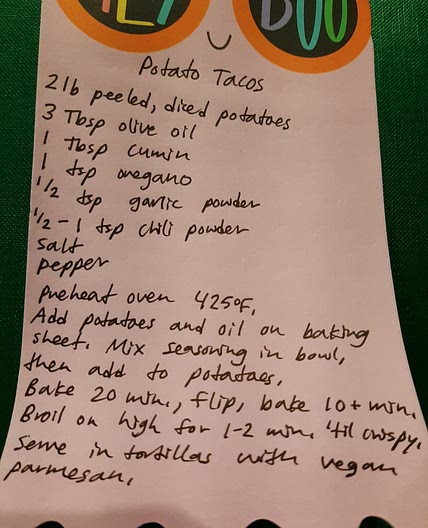 HEY
BOO
Potato Tacos
2 lb peeled, diced potatoes
3 Tbsp olive oil
1 Tbsp cumin
1 tsp oregano
1/2 tsp garlic powder
1/2-1 tsp chili powder
salt
pepper
Preheat oven 425°F.
Add potatoes and oil on baking
sheet. Mix seasoning in bowl,
then add to potatoes.
Bake 20 min., flip, bake 10+ min.
Broil on high for 1-2 min. 'til crispy.
Serve in tortillas with vegan
parmesan.